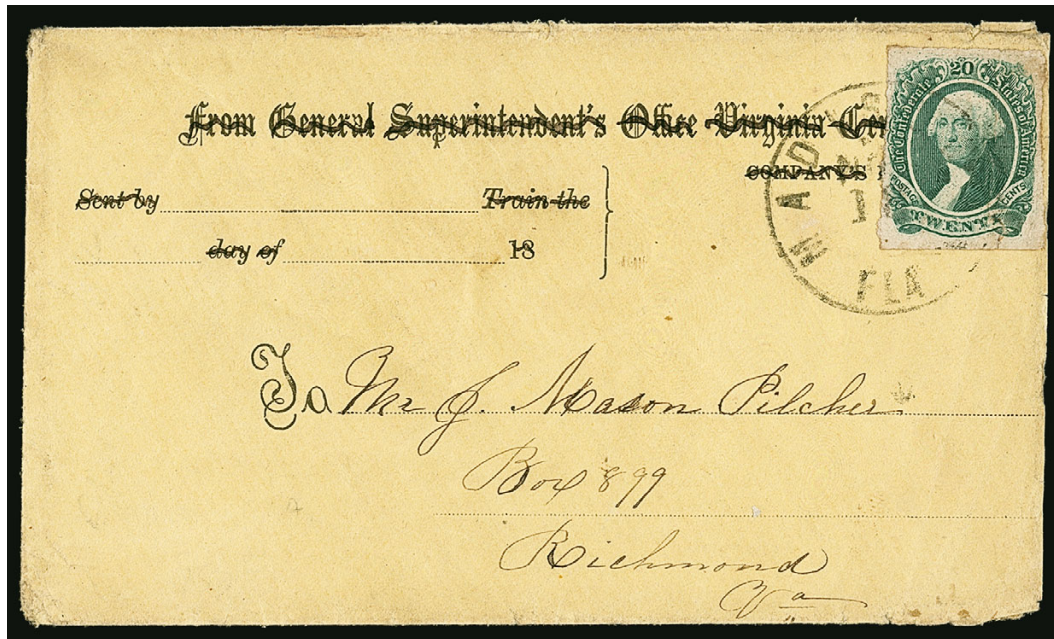 From General Superintendent's Office Virginia Cen
COMPANY'S
Sent by Train the
day of 18
20
The Confederate States of America
POSTAGE CENTS
TWENTY
MADIS
FLA
To Mr J. Mason Pilcher
Box 899
Richmond
Va